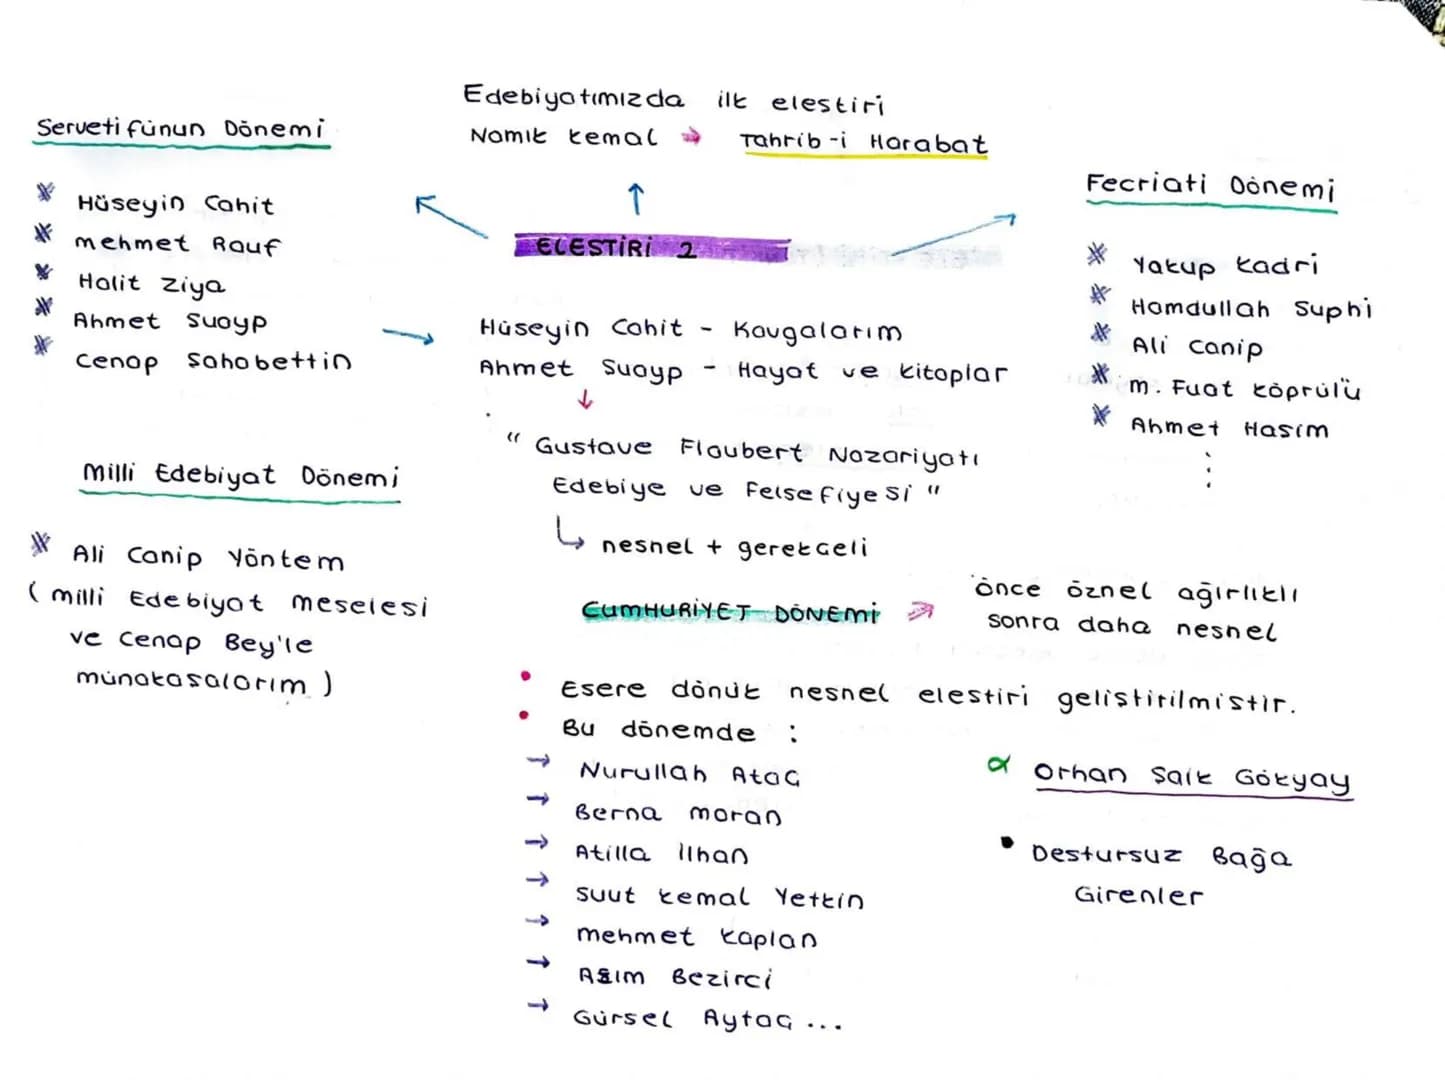 Edebiyatımızda ilk elestiri
Namık kemal → Tahrib-i Harabat
Serveti fünun Dönemi
Hüseyin Cahit
mehmet Rauf
Halit Ziya
Ahmet Suayp
Cenap Sahabettin
ELESTİRİ 2
Fecriati Dönemi
Yakup kadri
Hamdullah Suphi
Ali Canip
m. Fuat köprülü
Ahmet Hasim
Hüseyin Cahit - Kavgalarım
Ahmet Suayp - Hayat ve kitaplar
↓
" Gustave Flaubert Nazariyatı
Edebiye ve Felsefiyesi "
↳ nesnel + gerekçeli
Milli Edebiyat Dönemi
Ali Canip Yöntem
( milli Edebiyat meselesi
ve Cenap Bey'le
münakasalarım )
CUMHURİYET DÖNEMİ → önce öznel ağırlıklı
sonra daha nesnel
• Esere dönük nesnel elestiri geliştirilmiştir.
• Bu dönemde :
→ Nurullah Ataç
→ Berna moran
→ Atilla İlhan
→ Suut kemal Yetkin
→ mehmet kaplan
→ Asım Bezirci
→ Gürsel Aytaç ...
Orhan Saik Gökyay
• Destursuz Bağa
Girenler